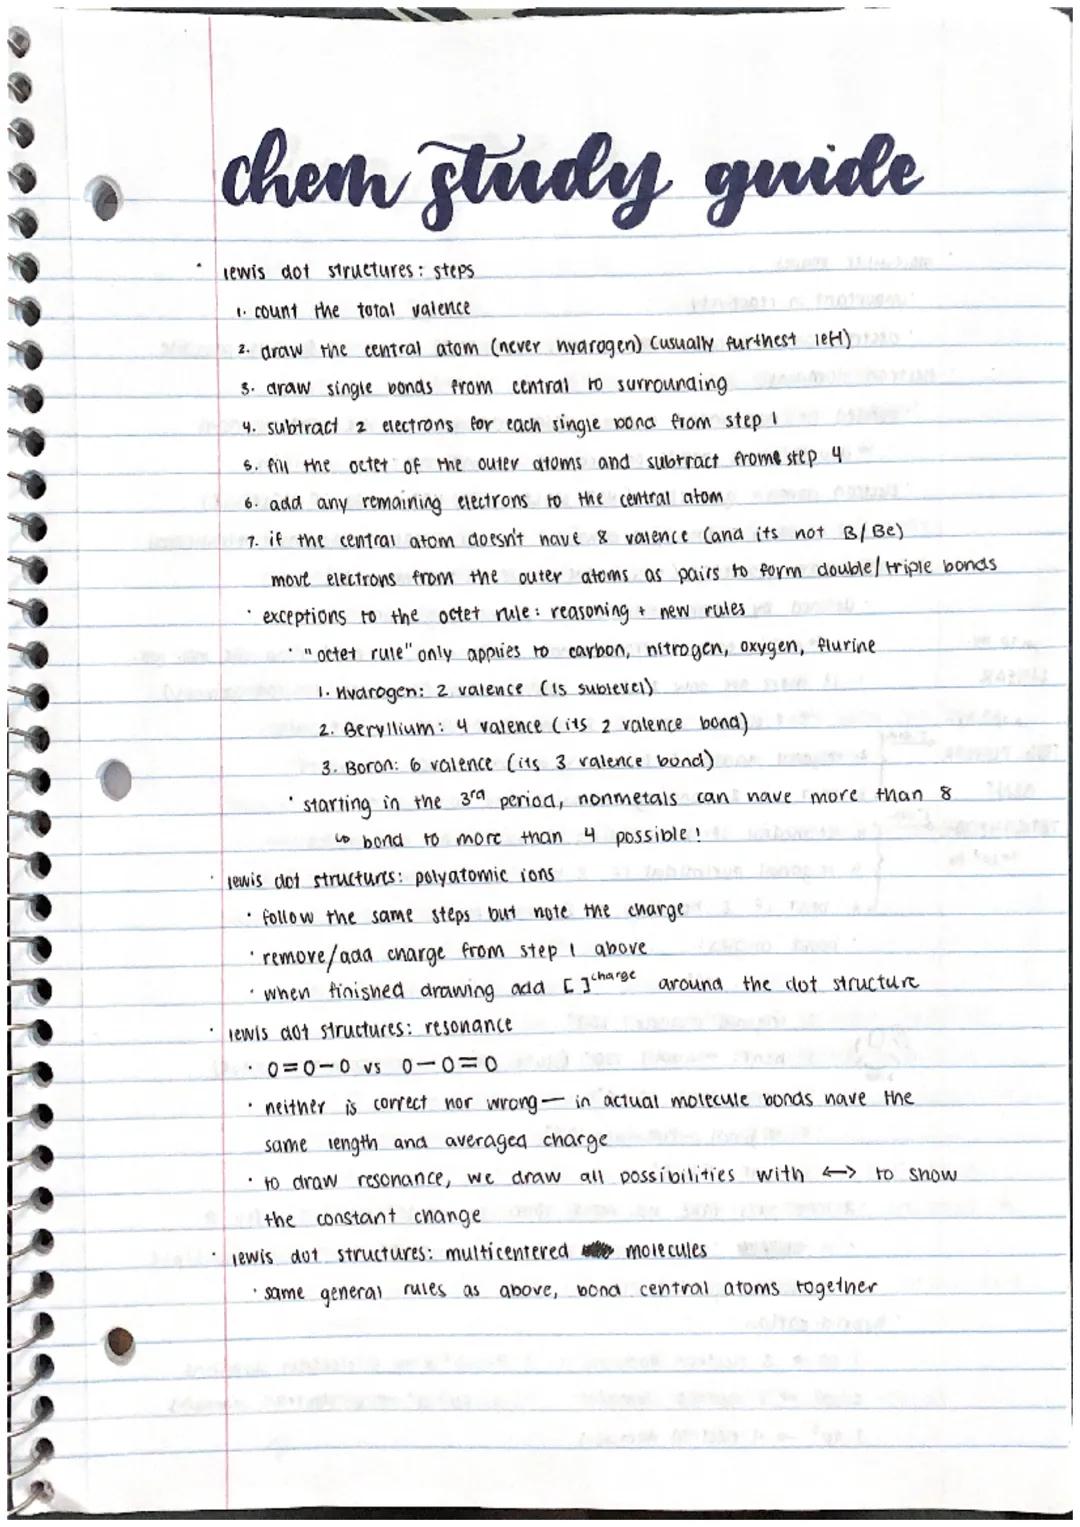 chem study guide
· lewis dot structures: steps
1. count the total valence
2. draw the central atom (never hydrogen) (usually furthest left)
3. draw single bonds from central to surrounding
4. subtract 2 electrons for each single bond from step 1
5. fill the octet of the outer atoms and subtract from step 4
6. add any remaining electrons to the central atom
7. if the central atom doesn't have 8 valence (and its not B/Be)
move electrons from the outer atoms as pairs to form double/triple bonds
· exceptions to the octet rule: reasoning + new rules
· "octet rule" only applies to carbon, nitrogen, oxygen, flurine
1. Hydrogen: 2 valence (1s sublevel)
2. Beryllium: 4 valence (its 2 valence bond)
3. Boron: 6 valence (its 3 valence bond)
· starting in the 3rd period, nonmetals can have more than 8
↳ bond to more than 4 possible!
· lewis dot structures: polyatomic ions
· follow the same steps but note the charge
· remove/add charge from step 1 above
· when finished drawing add [ ]charge around the dot structure
· lewis dot structures: resonance
· O=O-O vs O-O=O
· neither is correct nor wrong — in actual molecule bonds have the
same length and averaged charge
· to draw resonance, we draw all possibilities with ↔ to show
the constant change
· lewis dot structures: multicentered molecules
· same general rules as above, bond central atoms together